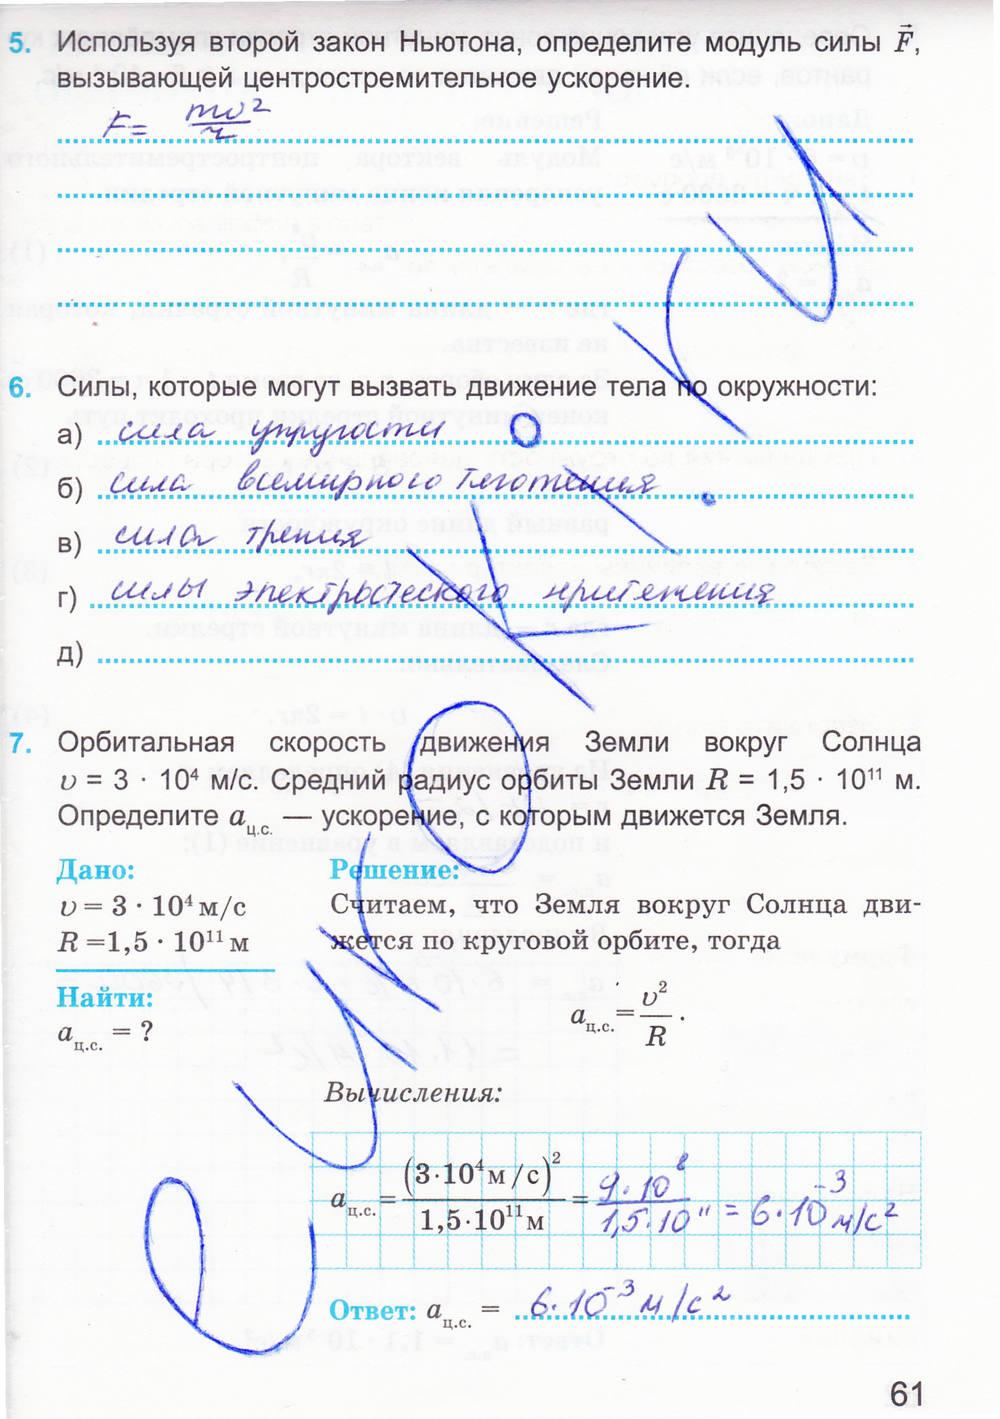 5. Используя второй закон Ньютона, определите модуль силы F⃗,
вызывающей центростремительное ускорение.
F = mυ²/r
6. Силы, которые могут вызвать движение тела по окружности:
а) сила упругости
б) сила всемирного тяготения
в) сила трения
г) силы электрического притяжения
д)
7. Орбитальная скорость движения Земли вокруг Солнца
υ = 3 · 10⁴ м/с. Средний радиус орбиты Земли R = 1,5 · 10¹¹ м.
Определите aц.с. — ускорение, с которым движется Земля.
Дано:
υ = 3 · 10⁴ м/с
R =1,5 · 10¹¹ м
Найти:
aц.с. = ?
Решение:
Считаем, что Земля вокруг Солнца дви-
жется по круговой орбите, тогда
aц.с. = υ²/R.
Вычисления:
aц.с. = (3·10⁴ м/с)²/1,5·10¹¹ м = 9·10⁸/1,5·10¹¹ = 6·10⁻³ м/с²
Ответ: aц.с. = 6·10⁻³ м/с²
61